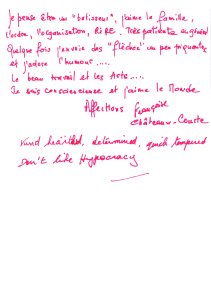 Je pense être un "batisseur", j'aime la famille,
l'ordre, l'organisation, RIRE. Très patiente en général
Quelque fois j'envoie des "flèches" un peu piquantes
et j'adore l'humour ....
Le beau travail et les Arts ....
Je suis consciencieuse et j'aime le Monde
Affections Françoise
Château-Conte
Kind hearted, determined, quick tempered
Don't like Hypocracy